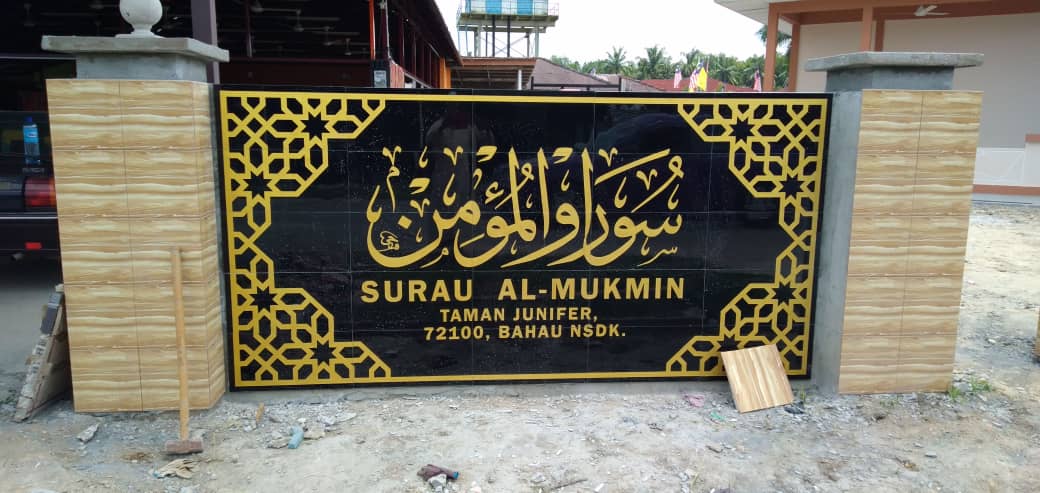 سوراو المؤمن
SURAU AL-MUKMIN
TAMAN JUNIFER,
72100, BAHAU NSDK.